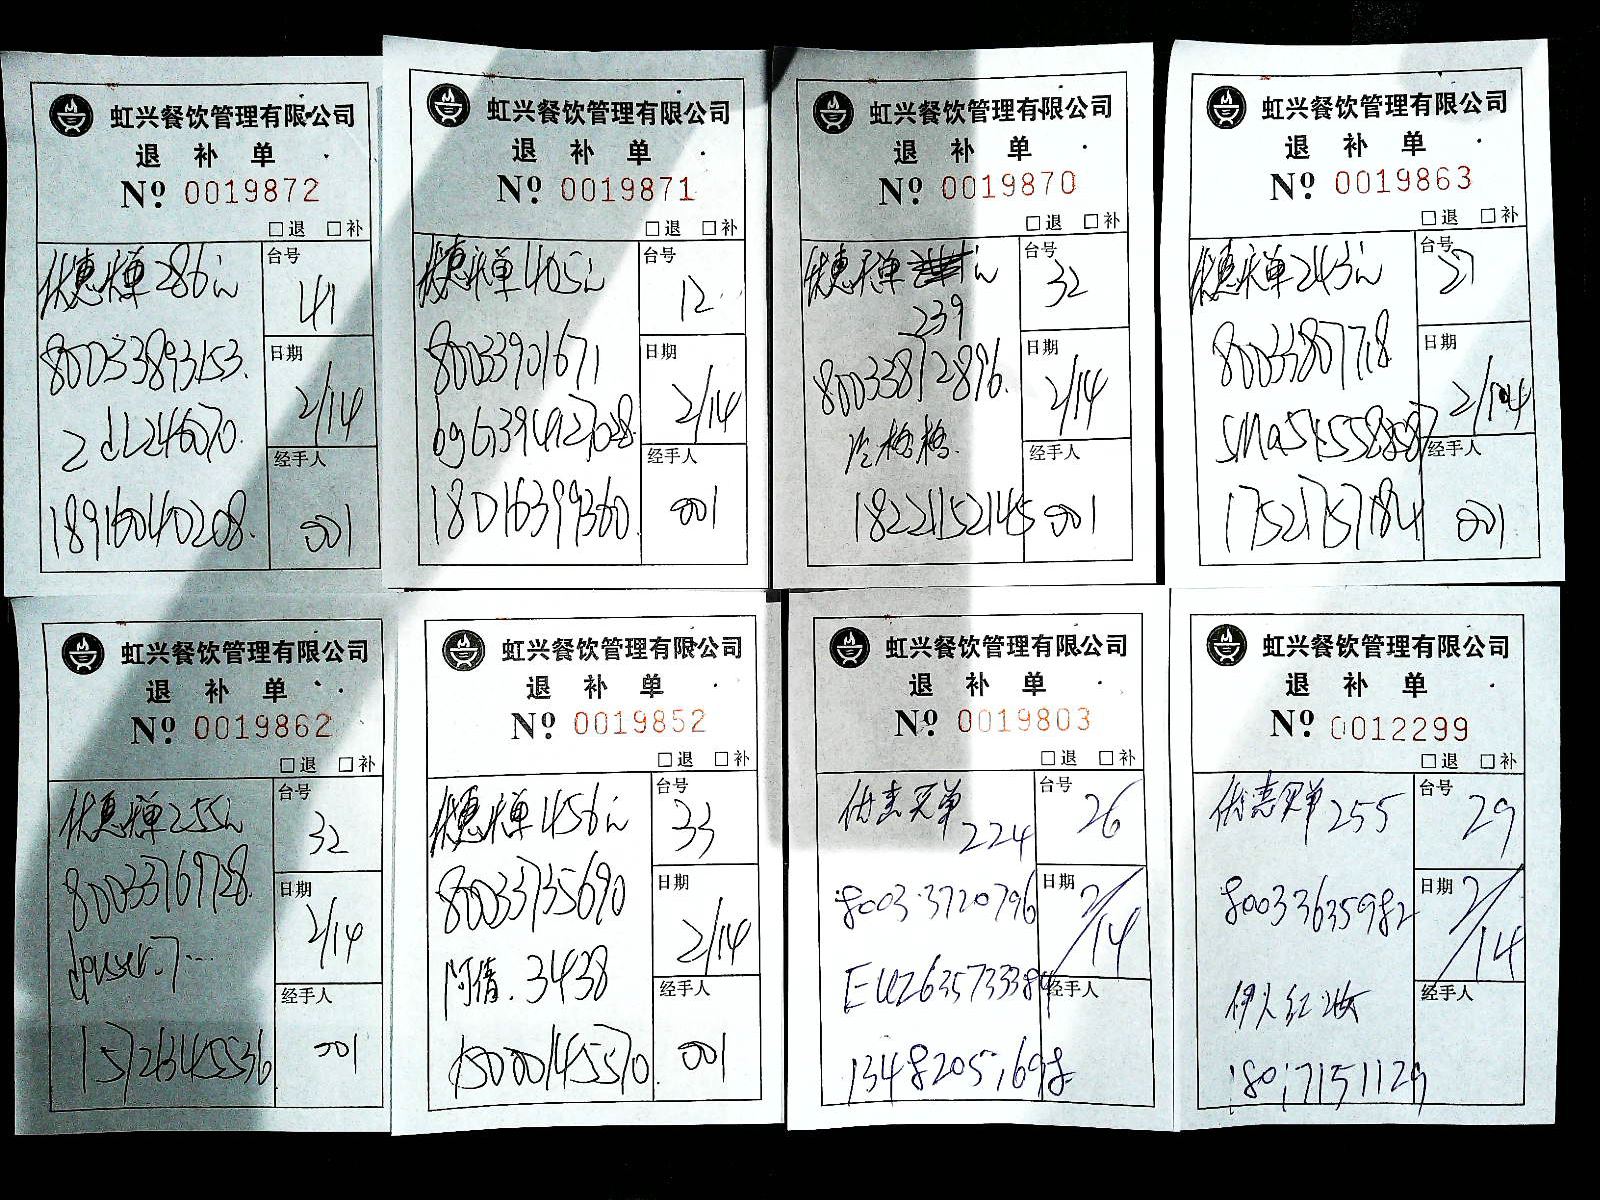 虹兴餐饮管理有限公司
退 补 单
Nº 0019872
□退 □补
优惠买单286元
台号
41
80033893153.
日期
2/14
2dL246070.
经手人
18916040208.
001
虹兴餐饮管理有限公司
退 补 单
Nº 0019871
□退 □补
优惠买单405元
台号
12
80033901671
日期
2/14
经手人
18016399360
001
虹兴餐饮管理有限公司
退 补 单
Nº 0019870
□退 □补
优惠买单 元
239
台号
32
80033812896.
日期
2/14
经手人
18221152145
001
虹兴餐饮管理有限公司
退 补 单
Nº 0019863
□退 □补
优惠买单243元
台号
21
80033807718
日期
2/14
经手人
17521757184
001
虹兴餐饮管理有限公司
退 补 单
Nº 0019862
□退 □补
优惠买单255元
台号
32
80033769728.
日期
2/14
dpuser.7...
经手人
15726345536
001
虹兴餐饮管理有限公司
退 补 单
Nº 0019852
□退 □补
优惠买单456元
台号
33
80033735690
日期
2/14
阿倩.3438
经手人
15000145570.
001
虹兴餐饮管理有限公司
退 补 单
Nº 0019803
□退 □补
优惠买单
224
台号
26
80033720796
日期
2/14
EU2635733384
经手人
13482051698
虹兴餐饮管理有限公司
退 补 单
Nº 0012299
□退 □补
优惠买单255
台号
29
80033635982
日期
2/14
伊人红妆
经手人
18017151129